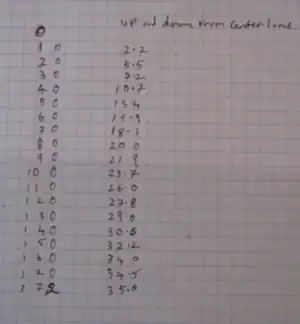 up and down from center line.
0
10 2.2
20 5.5
30 7.2
40 10.7
50 13.4
60 15.9
70 18.1
80 20.0
90 21.9
100 23.7
110 26.0
120 27.8
130 29.0
140 30.6
150 32.2
160 34.0
170 34.5
172 35.0